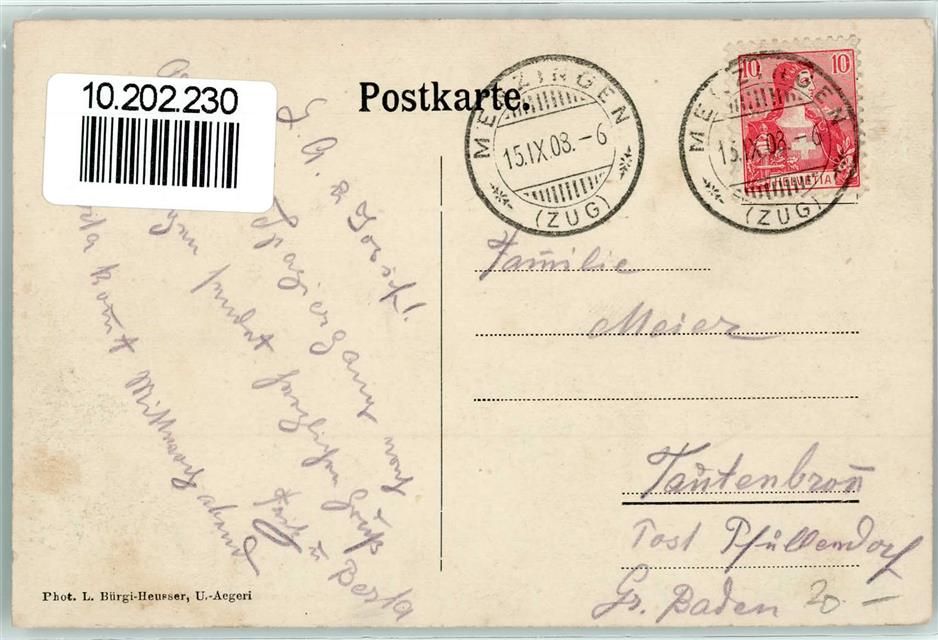 10.202.230
Postkarte.
MENZINGEN
15.IX.08.-6
(ZUG)
MENZINGEN
15.IX.08.-6
(ZUG)
10 10
HELVETIA
L. G. & Josef!
Spaziergang nach
sendet herzlichen Gruß
u Berta
komt Mittwoch abend
Familie
Meier
Tautenbron̄
Post Pfullendorf
Gr. Baden
20 —
Phot. L. Bürgi-Heusser, U.-Aegeri